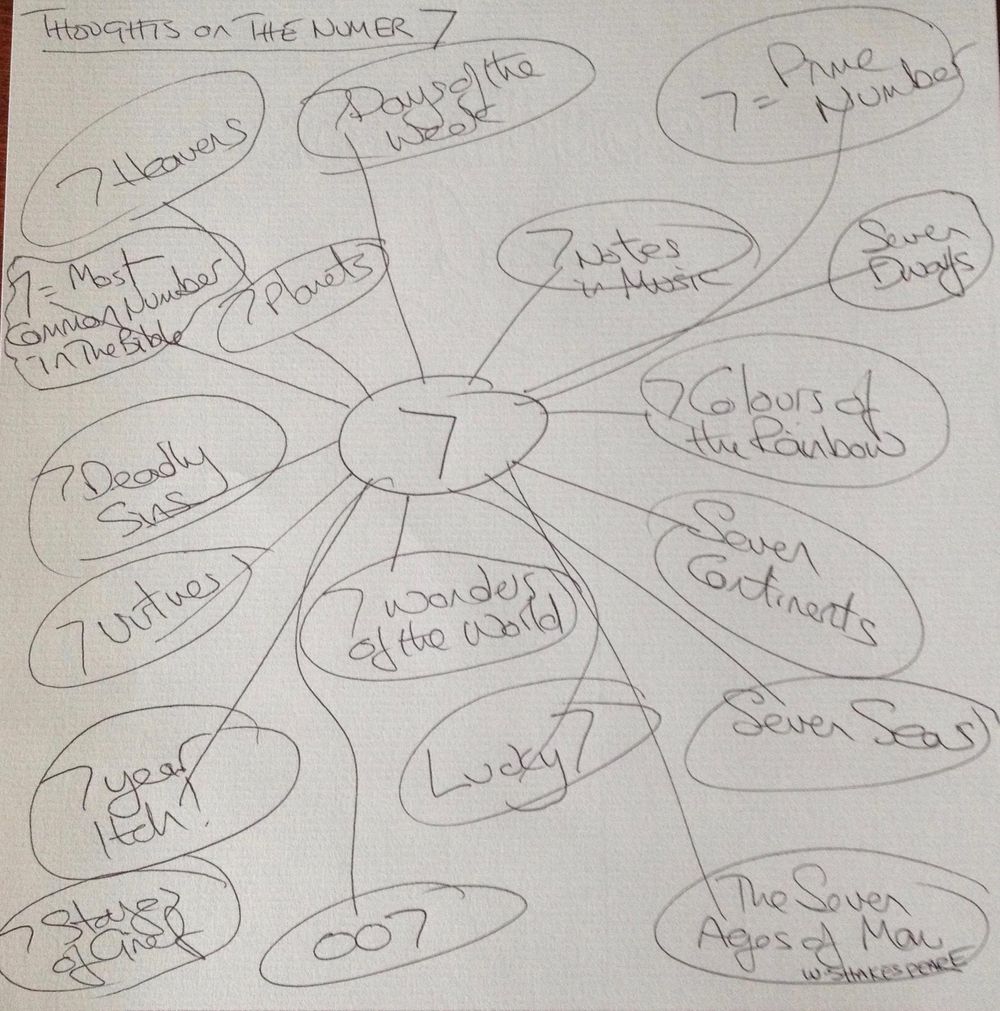 THOUGHTS ON THE NUMER 7
7 Heavens
7 Days of the
Week
7 = Prime
Number
7 = Most
Common Number
in The Bible
7 Planets
7 Notes
in Music
Seven
Dwarfs
7
7 Colours of
the Rainbow
7 Deadly
Sins
Seven
Continents
7 Virtues
7 Wonders
of the World
7 year
Itch!
Lucky 7
Seven Seas
7 Stages
of Grief
007
The Seven
Ages of Man
W. SHAKESPEARE